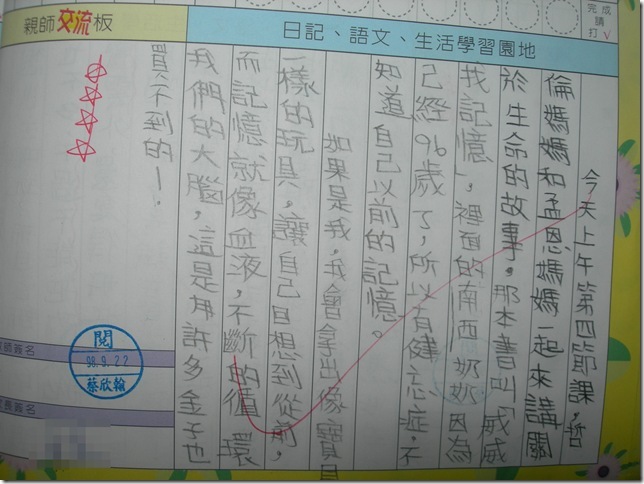 親師交流板
日記、語文、生活學習園地
完成
請
打√
今天上午第四節課，哲
倫媽媽和孟恩媽媽一起來講關
於生命的故事。那本書叫「威威
找記憶」，裡面的南西奶奶因為
己經96歲了，所以有健忘症，不
知道自己以前的記憶。
如果是我，我會拿出像寶貝
一樣的玩具，讓自己回想到從前，
而記憶就像血液，不斷的循環
我們的大腦，這是用許多金子也
買不到的！
師簽名
閱
98.9.22
蔡欣翰
長簽名